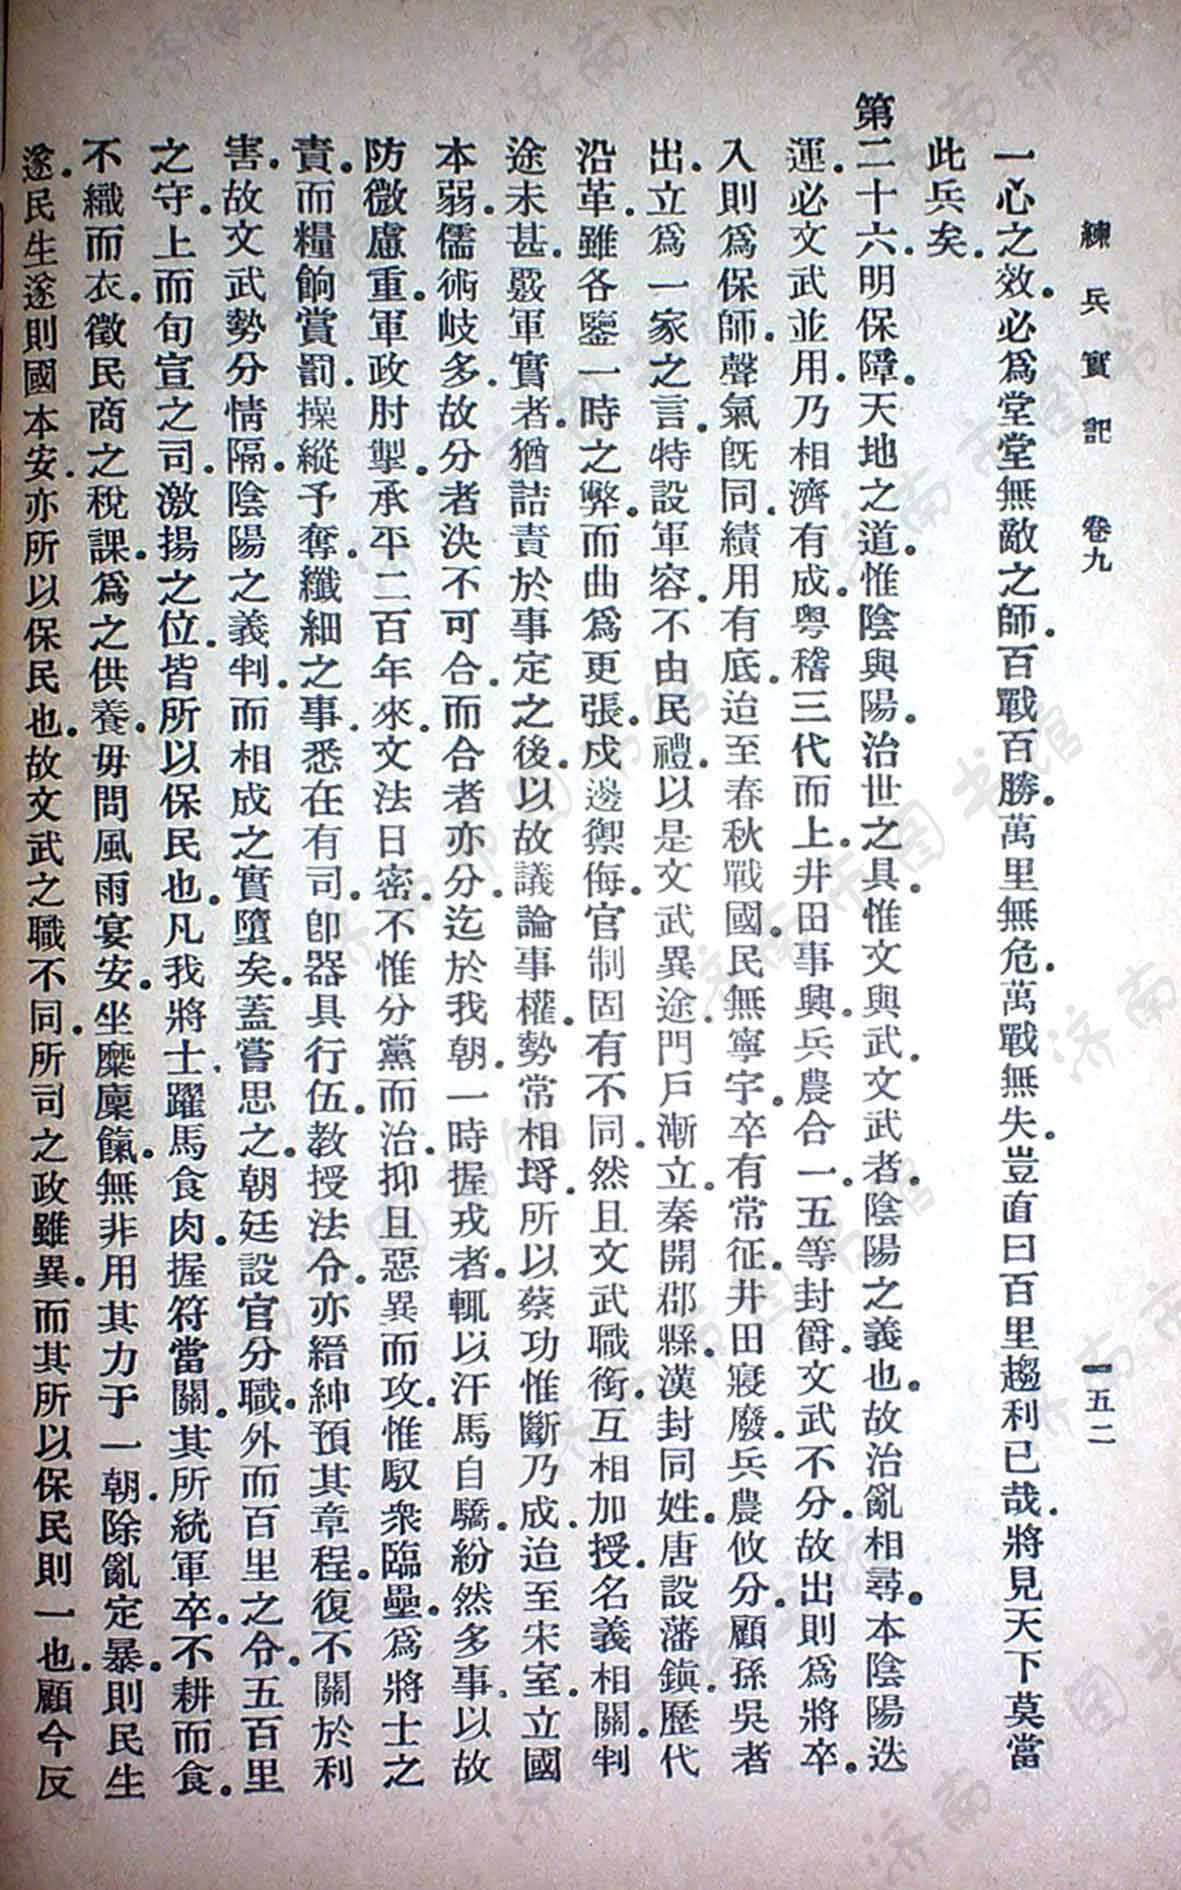 練兵實記 卷九 一五二
一心之效必爲堂堂無敵之師百戰百勝萬里無危萬戰無失豈直曰百里趨利已哉將見天下莫當
此兵矣
第二十六明保障天地之道惟陰與陽治世之具惟文與武文武者陰陽之義也故治亂相尋本陰陽迭
運必文武並用乃相濟有成粵稽三代而上井田事興兵農合一五等封爵文武不分故出則爲將卒
入則爲保師聲氣旣同績用有底迨至春秋戰國民無寧宇卒有常征井田寢廢兵農攸分顧孫吳者
出立爲一家之言特設軍容不由民禮以是文武異途門戶漸立秦開郡縣漢封同姓唐設藩鎮歷代
沿革雖各鑒一時之弊而曲爲更張戍邊禦侮官制固有不同然且文武職銜互相加授名義相關判
途未甚覈軍實者猶詰責於事定之後以故議論事權勢常相埒所以蔡功惟斷乃成迨至宋室立國
本弱儒術岐多故分者決不可合而合者亦分迄於我朝一時握戎者輒以汗馬自驕紛然多事以故
防微慮重軍政肘掣承平二百年來文法日密不惟分黨而治抑且惡異而攻惟馭衆臨壘爲將士之
責而糧餉賞罰操縱予奪纖細之事悉在有司卽器具行伍教授法令亦縉紳預其章程復不關於利
害故文武勢分情隔陰陽之義判而相成之實墮矣蓋嘗思之朝廷設官分職外而百里之令五百里
之守上而旬宣之司激揚之位皆所以保民也凡我將士躍馬食肉握符當關其所統軍卒不耕而食
不織而衣徵民商之稅課爲之供養毋問風雨宴安坐糜廩餼無非用其力于一朝除亂定暴則民生
遂民生遂則國本安亦所以保民也故文武之職不同所司之政雖異而其所以保民則一也顧今反